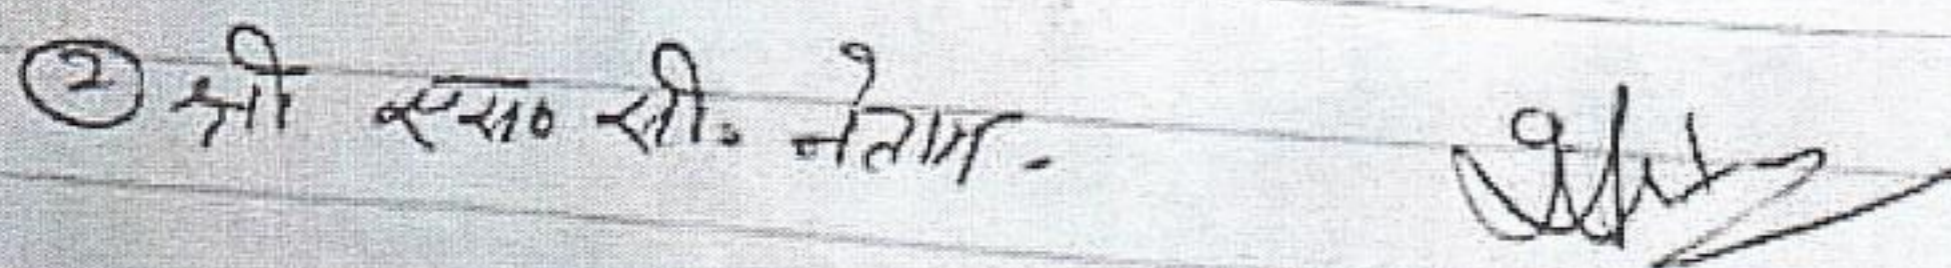 ② श्री एस० सी० नेताम -